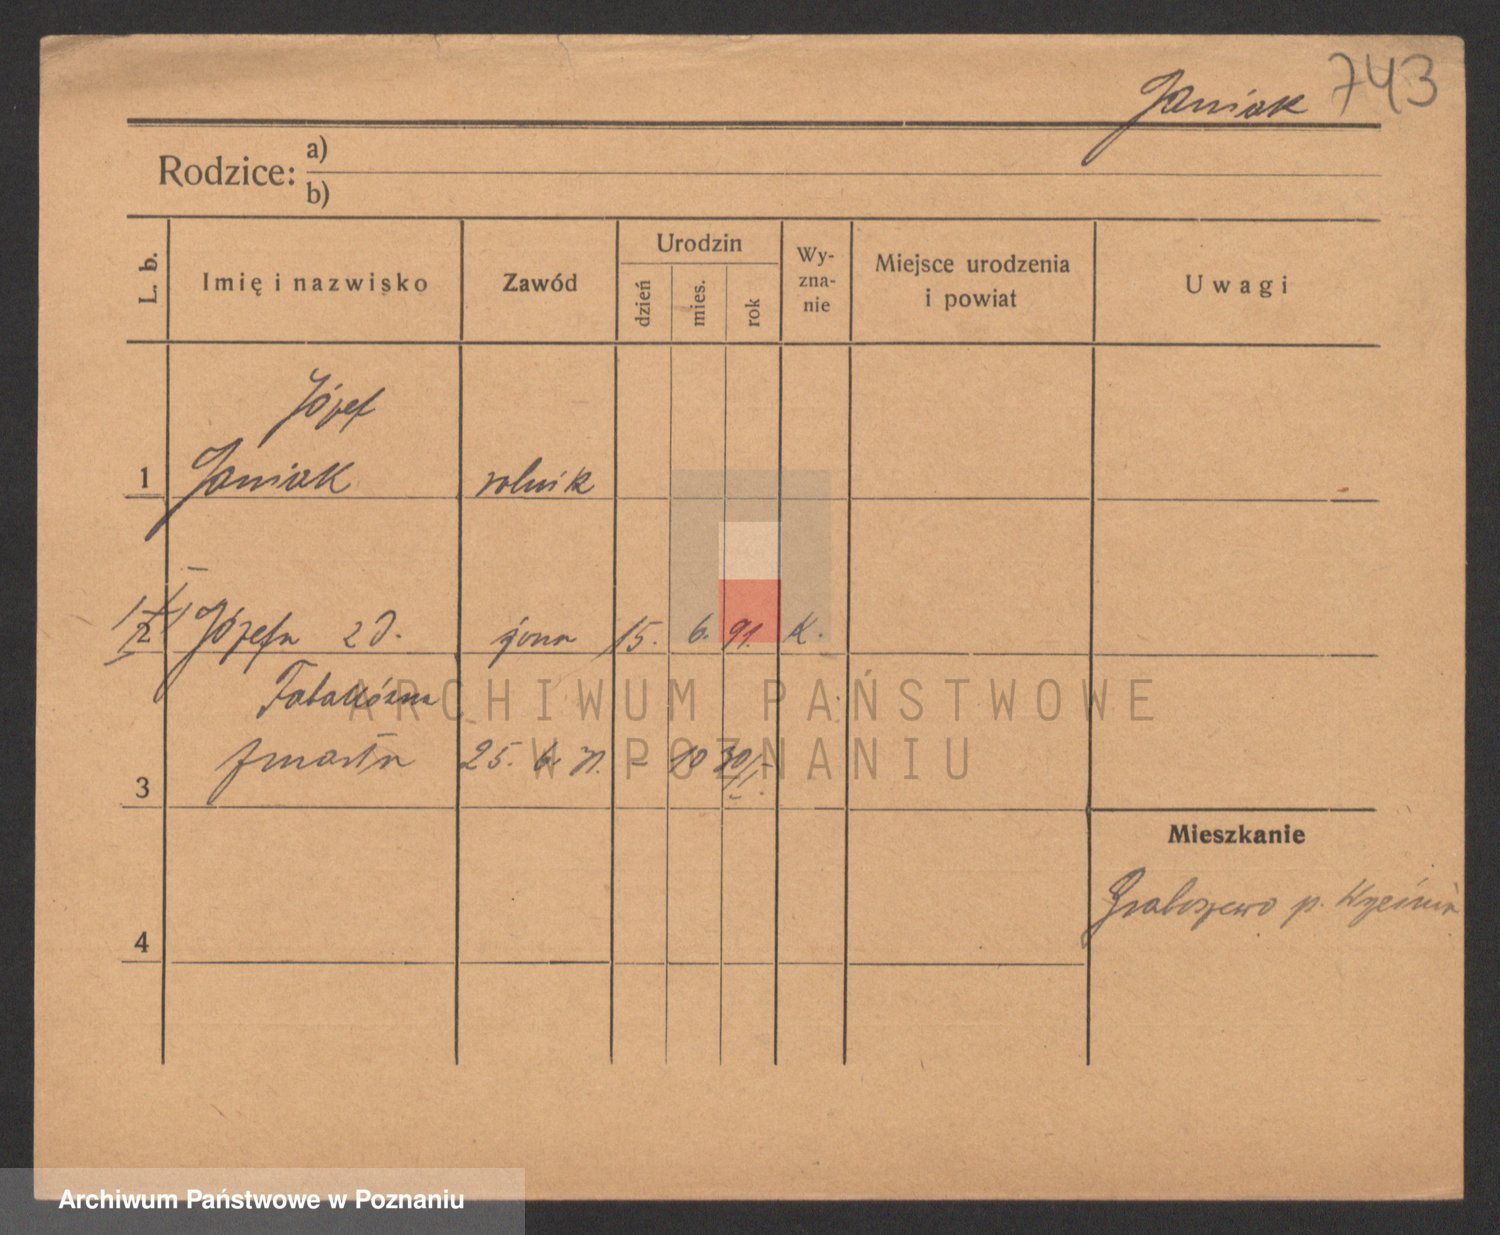 Janiak 743
Rodzice: a)
b)
L. b.
Imię i nazwisko
Zawód
Urodzin
dzień
mies.
rok
Wy-
zna-
nie
Miejsce urodzenia
i powiat
Uwagi
Józef
1 Janiak rolnik
2 Józefa z d. żona 15. 6. 91. K.
zmarła 25. 6.
3
Mieszkanie
Graboszewo p.
4
ARCHIWUM PAŃSTWOWE
W POZNANIU
Archiwum Państwowe w Poznaniu